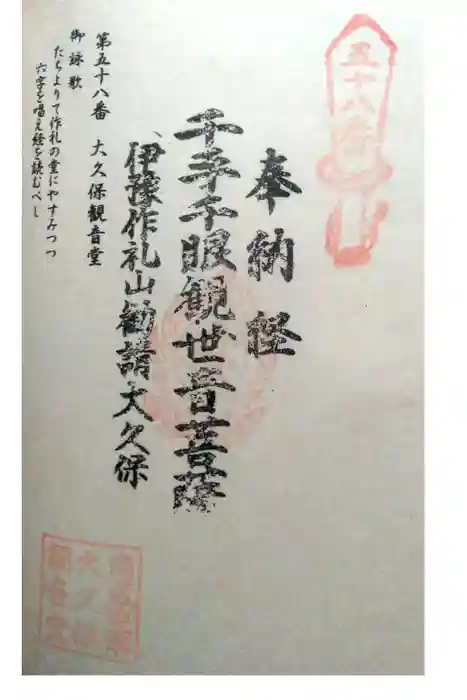 五十八番
奉納経
千手千眼観世音菩薩
伊豫作礼山勧請大久保
第五十八番 大久保観音堂
御詠歌
たちよりて作礼の堂にやすみつつ
六字を唱え経を読むべし
大久保
観音堂